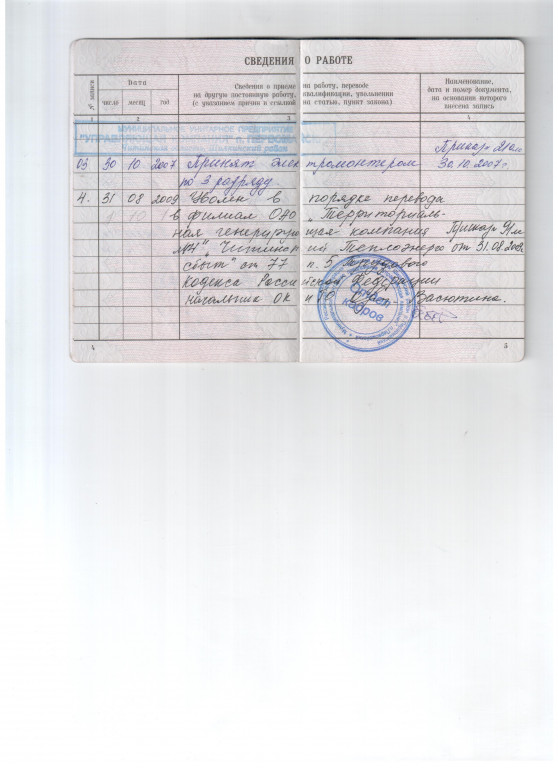 СВЕДЕНИЯ О РАБОТЕ
№ записи
Дата
число месяц год
Сведения о приеме на работу, переводе
на другую постоянную работу, квалификации, увольнении
(с указанием причин и ссылкой на статью, пункт закона)
Наименование,
дата и номер документа,
на основании которого
внесена запись
1 2 3 4
МУНИЦИПАЛЬНОЕ УНИТАРНОЕ ПРЕДПРИЯТИЕ
03 30 10 2007 Принят электромонтером
по 3 разряду.
Приказ
30.10.2007г
4. 31 08 2009 Уволен в порядке перевода
в филиал ОАО "Территориаль-
ная генерирующая компания
№14" "Читинский Теплоэнерго
сбыт" ст 77 п. 5 Трудового
кодекса Российской Федерации
Приказ
от 31.08.2009
начальник ОК Васютина.
кадров
4
5